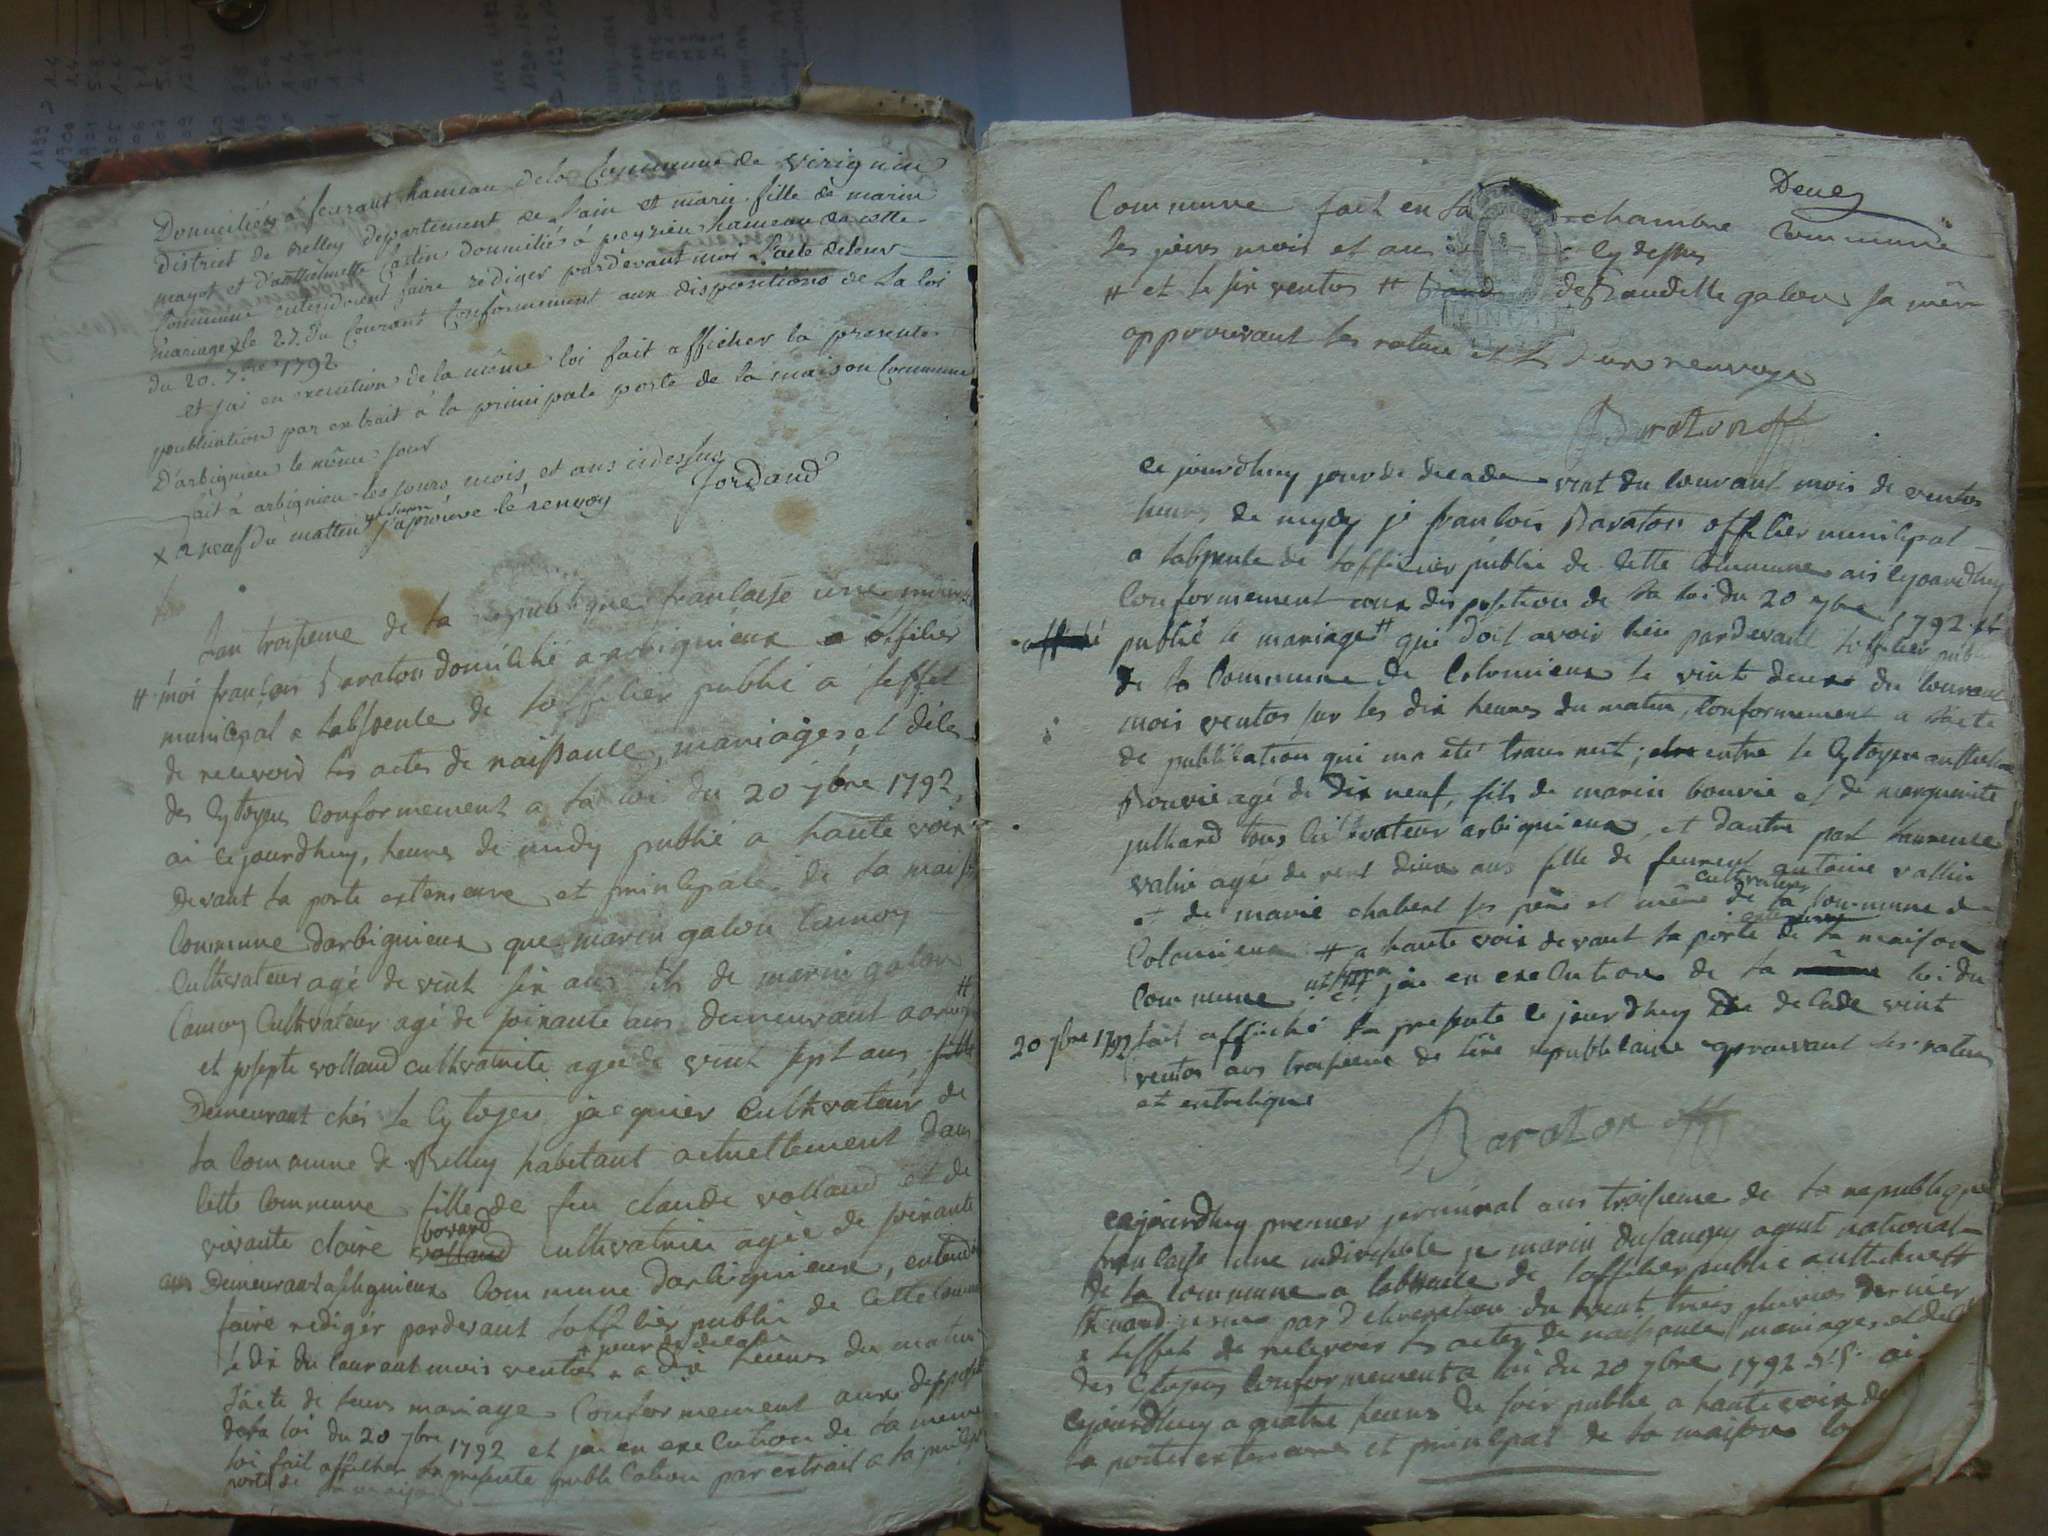 Domiciliés à feurant hameau dela Commune de virignin
district de Belley departement de Lain et marie fille de marin
mayot et d'anthelmette Catin domiciliés à peyzieu hameau de cette
Commune entendoient faire rédiger pardevant moi L'acte deleur
mariage x le 27. du Courant Conformement aux dispositions de La loi
du 20. 7.bre 1792
et jai en execution de la même loi fait afficher la presente
publication par extrait à la principale porte de la maison Commune
D'arbignieu le même jour
fait à arbignieu les jours mois et ans cidessus
x a neuf du mattin j'aprouve le renvoy Jordand
Lan troisieme de la republique francaise une
# moi francois Baraton domicilié a arbignieux officier
municipal a labsence de lofficier public a leffet
de recevoir les actes de naissance, mariages et déces
des Cytoyens conformement a la loi du 20 7bre 1792,
ai cejourdhuy, heures de midy publié a haute voix
devant la porte exterieure et principale de la maison
Commune darbignieux que marin galon Camoy
Cultivateur agé de vint six ans fils de marin galon
Camoy Cultivateur agé de soixante ans demeurant a #
et josepte volland cultivatrice agée de vint sept ans, fille
Demeurant chés le Cytoyen jacquier Cultivateur de
la Commune de Belley habitant actuellement dans
cette commune fille de feu claude volland et de
vivante claire volland bovard cultivatrice agée de soixante
ans Demeurant a Commune darbignieux, entend
faire rediger pardevant lofficier public de cette Commune
le dix du courant mois ventos + jour de decade a dix heures du matin
lacte de leurs mariage Conformement aux
dela loi du 20 7bre 1792 et jai en execution de la meme
loi fait afficher la presente publication par extrait a la
porte de la maison
Deuez
Commune fait en la chambre Commune
les jours mois et an cy dessus
# et le six ventos # de Baudette galon sa mère
approuvant les rature et un renvoye
Baraton off
cejourdhuy jour de decade vint du courant mois de ventos
heures de mydy je francois Baraton officier municipal
a labsence de lofficier public de cette Commune ais cejourdhuy
Conformement aux disposition de la loi du 20 7bre 1792
publié le mariage # qui doit avoir lieu pardevant lofficier public
de la Commune de Colomieux le vint deux du courant
mois ventos sur les dix heures du matin, conformement a lacte
de publication qui ma été transmit; entre le Cytoyen anthelme
Bouvié agé de dix neuf, fils de marin bouvié et de marguerite
julliard tous Cultivateur arbignieux, et dautre part laurence
valin agée de vent deux ans fille de antoine vallin
et de marie chabert ses père et mère cultivateurs de la Commune de
Colomieux # a haute voix devant la porte exterieure de la maison
Commune ut supra jai en execution de la même loi du
20 7bre 1792 fait affiché la presente cejourdhuy decade vint
ventos ans troisieme de lère republicaine aprouvant les ratures
et entreligne
Baraton off
cejourdhuy premier germinal ans troisieme de la republique
francaise une indivisible je marin dusaugey agent national
de la commune a labsence de lofficier public anthelme #
nommé par deliberation du vint trois pluvios dernier
a leffet de recevoir les actes de naissance mariages et décès
des Cytoyens conformement a loi du 20 7bre 1792 ai
cejourdhuy a quatre heures du soir publié a haute voix
la porte exterieure et principal de la maison